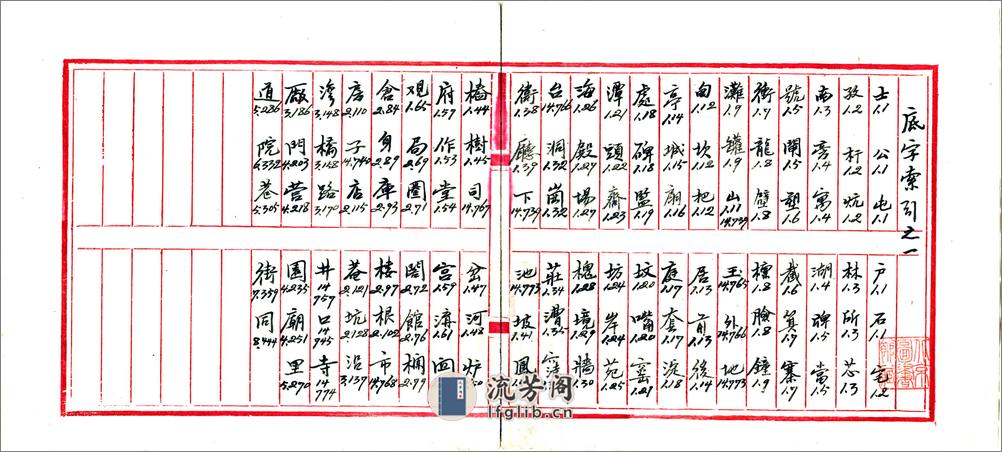 底字索引之一
士1.1 公1.1 屯1.1 户1.1 石1.1 宅1.2
孜1.2 杆1.2 炕1.2 林1.3 所1.3 芯1.3
南1.3 旁1.4 寓1.4 湖1.4 碑1.5 當1.5
號1.5 閘1.5 塑1.6 截1.6 箕1.7 寨1.7
衙1.7 龍1.8 壁1.8 檀1.8 臉1.8 鐘1.9
灘1.9 罐1.9 山1.11 14.759 玉14.765 外14.766 地14.773
甸1.12 坎1.12 把1.12 居1.13 前1.13 後1.14
亭1.14 城1.15 廟1.16 庭1.17 套1.17 淀1.18
處1.18 碑1.18 監1.19 墳1.20 嘴1.20 窑1.21
潭1.21 頭1.22 齋1.23 坊1.24 岸1.24 苑1.25
海1.26 殿1.27 場1.27 槐1.28 境1.29 牆1.30
台14.766 洞1.32 崗1.32 莊1.34 漕1.35
衛1.38 廳1.39 下14.739 池14.773 坡1.41 鳳
橋1.44 樹1.45 司14.767 岔1.47 河1.48 炉
府1.57 作1.53 堂1.54 宫1.59 溝1.61
观1.65 局2.69 圈2.71 閣2.72 館2.76 柵2.77
倉2.84 身2.89 庫2.93 樓2.97 根2.102 市14.768
店2.110 子4.740 店2.115 菴2.121 坑2.128 沿3.137
湾3.148 橋3.148 路3.170 井14.757 口14.945 寺14.774
廠3.186 門4.203 营4.218 園4.235 廟4.251 里5.270
道5.286 院6.332 巷5.305 街7.359 同8.444
流芳阁
lfglib.cn